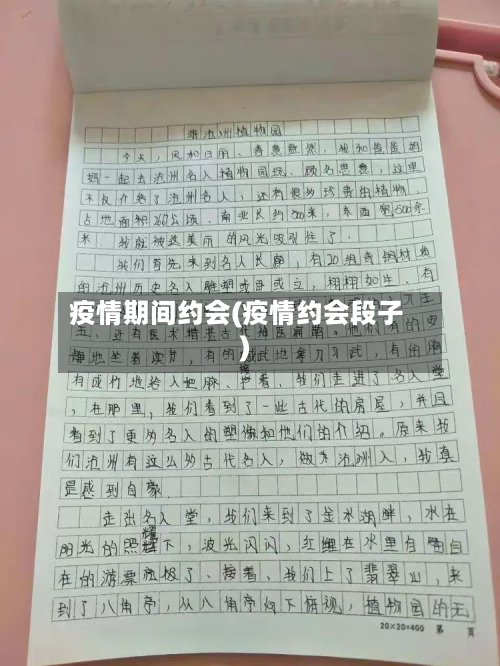 游沧州植物园
今天，风和日丽、春意盎然，我和爸爸妈
妈一起去沧州名人植物园玩。顾名思意，这里
不仅介绍了沧州名人，还有很多珍贵的植物，
占地面积公顷、南北长约米，东西宽500余
米．我就被这美丽的风光吸引住了．
我们首先来到名人长廊，有20组青铜材质
的沧州历史名人雕塑或坐或立，栩栩如生、有
疫情期间约会(疫情约会段子
)
静地坐着读书，有的威武地拿刀习武，有的胸
有成竹地给人把脉．接着，我们走进了名人堂
，在那里，我们看到了一些古代的房屋，并且
看到了更多名人的塑像和他们的介绍。原来我
们沧州有这么多古代名人，做为沧洲人，我真
是感到自豪．
走出名人堂，我们来到了金水湖畔，水在
阳光的照耀下，波光闪闪，红鲤在水里自由自
在的游漂亮极了、接着，我们上了翡翠山，来
到了八角亭，从八角亭向下俯视，植物园的无
20×20=400 第 页